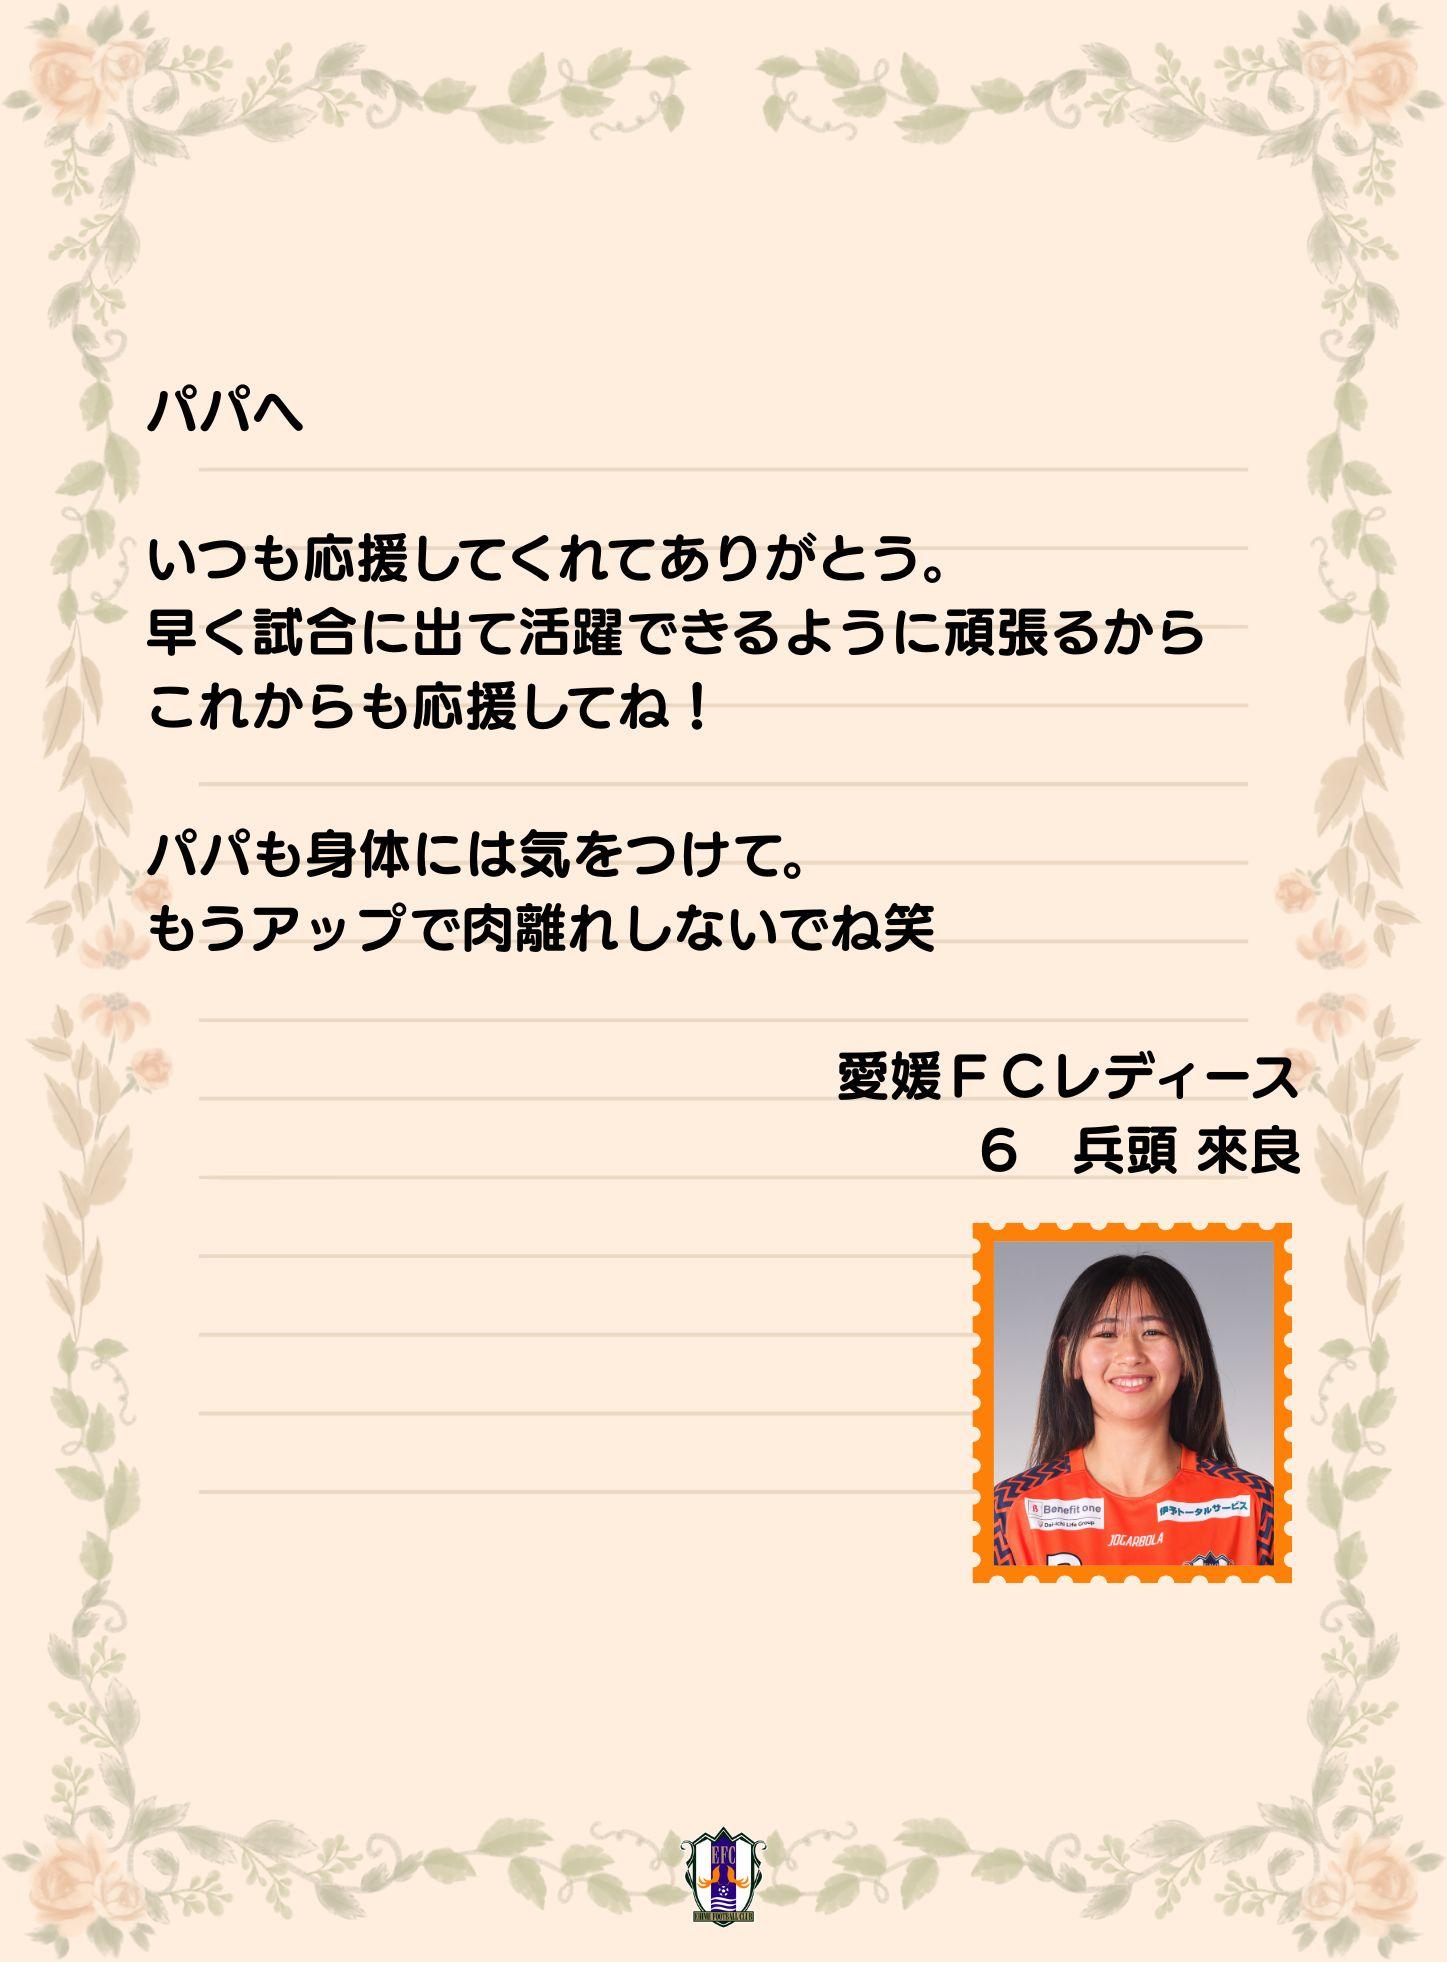 パパへ
いつも応援してくれてありがとう。
早く試合に出て活躍できるように頑張るから
これからも応援してね！
パパも身体には気をつけて。
もうアップで肉離れしないでね笑
愛媛ＦＣレディース
６　兵頭 來良
Benefit one
Dai-ichi Life Group
伊予トータルサービス
JOGARBOLA
EFC
EHIME FOOTBALL CLUB